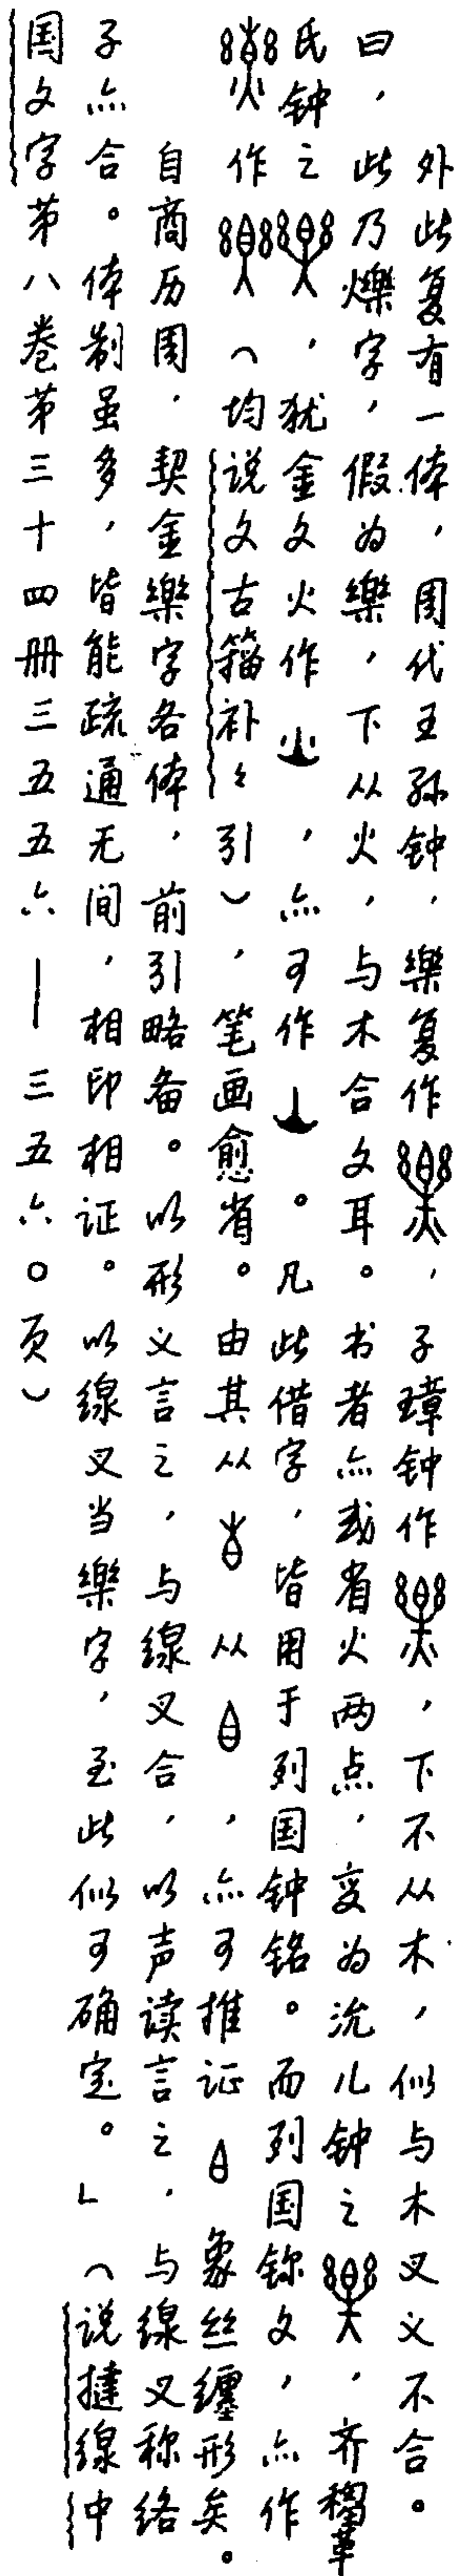 外此复有一体，周代王孙钟，樂复作，子璋钟作，下不从木，似与木叉义不合。
曰，此乃爍字，假为樂，下从火，与木合文耳。书者亦或省火两点，变为沇儿钟之，齐
氏钟之，犹金文火作，亦可作。凡此借字，皆用于列国钟铭。而列国鉨文，亦作
作（均说文古籀补补引），笔画愈省。由其从从，亦可推证象丝缠形矣。
自商历周，契金樂字各体，前引略备。以形义言之，与線叉合，以声读言之，与線叉称络
子亦合。体制虽多，皆能疏通无间，相印相证。以線叉当樂字，至此似可确定。」（说㨗線中
国文字第八卷第三十四册三五五六—三五六〇页）